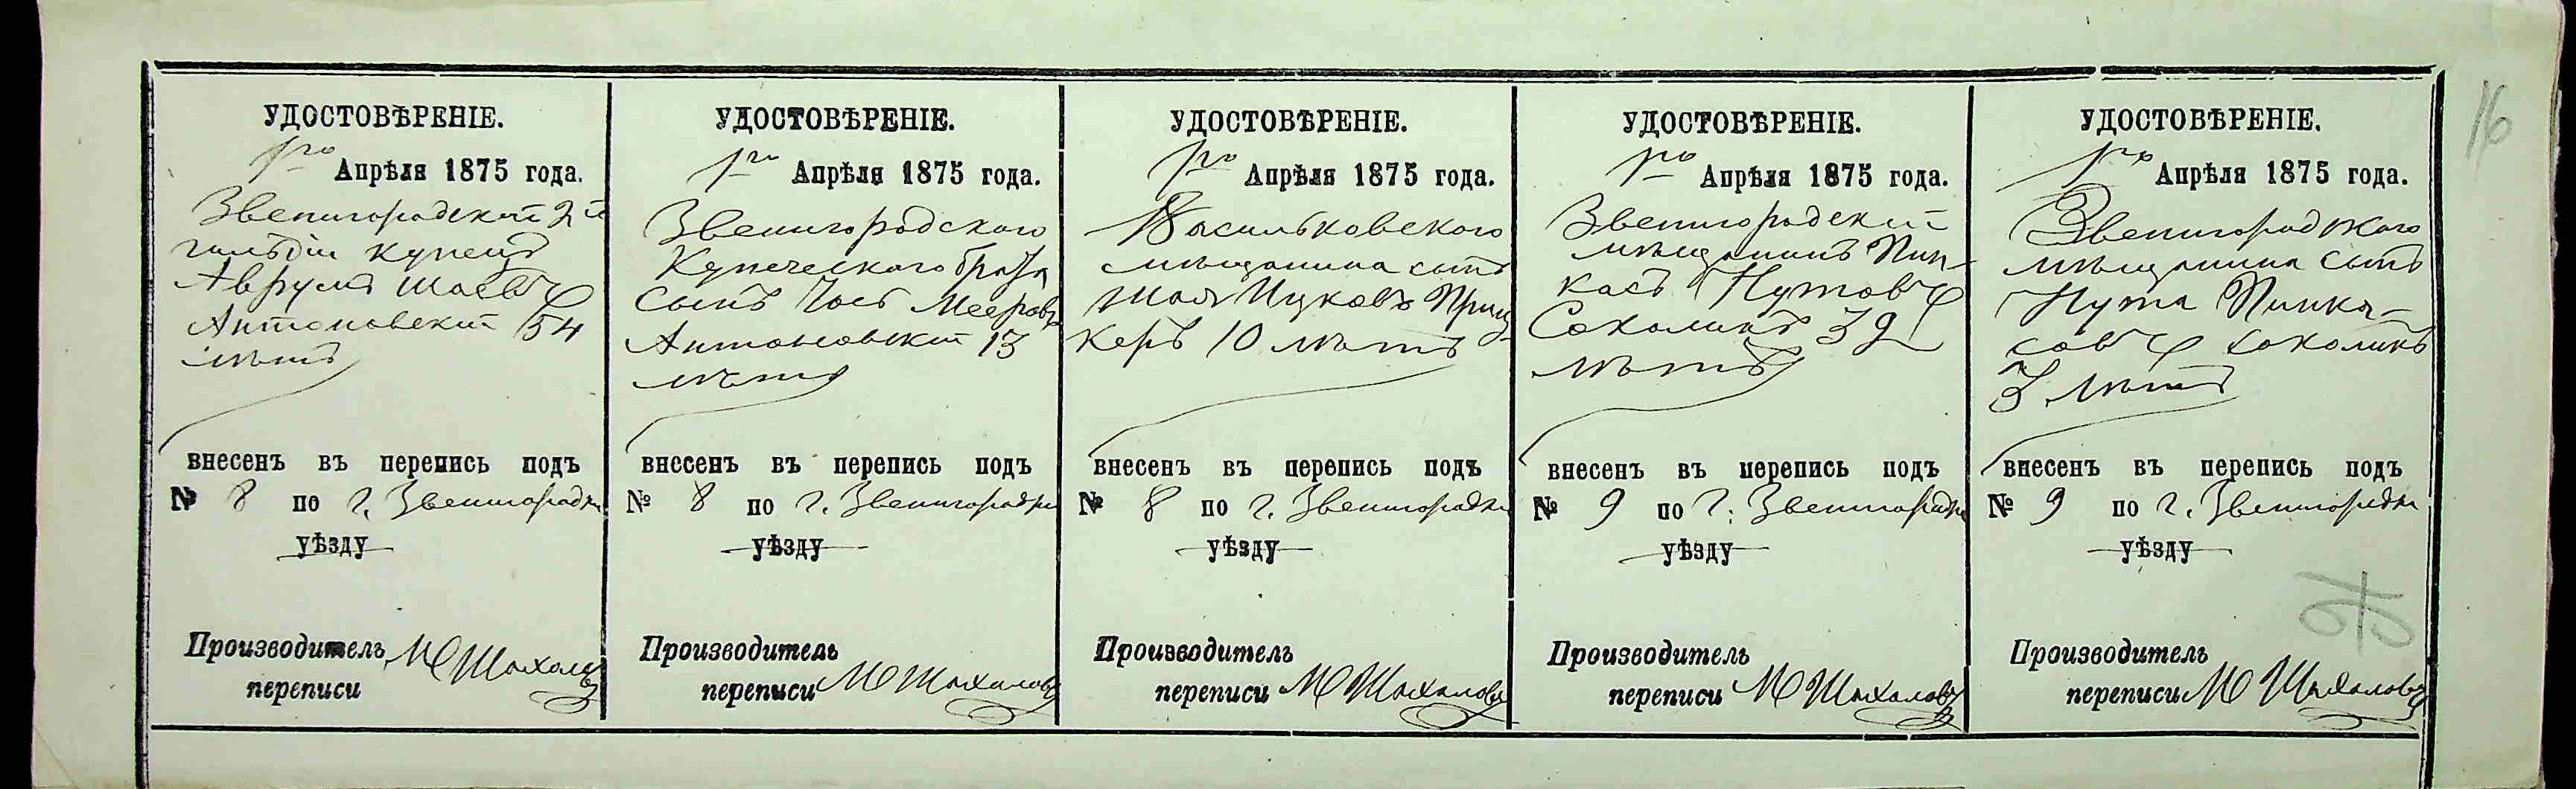 16
УДОСТОВѢРЕНІЕ.
1го Апрѣля 1875 года.
Звенигородскій 2й
гильдіи купецъ
Аврумъ Шаевъ
Антоновскій 54
лѣтъ
внесенъ въ перепись подъ
№ 8 по г. Звенигородки
уѣзду
Производитель
переписи М Шахаловъ
УДОСТОВѢРЕНІЕ.
1го Апрѣля 1875 года.
Звенигородского
Купеческого брата
сынъ Іосъ Мееровъ
Антоновскій 13
лѣтъ
внесенъ въ перепись подъ
№ 8 по г. Звенигородки
уѣзду
Производитель
переписи М Шахаловъ
УДОСТОВѢРЕНІЕ.
1го Апрѣля 1875 года.
Васильковского
мѣщанина сынъ
Шая Ицковъ Приц-
керъ 10 лѣтъ
внесенъ въ перепись подъ
№ 8 по г. Звенигородки
уѣзду
Производитель
переписи М Шахаловъ
УДОСТОВѢРЕНІЕ.
1го Апрѣля 1875 года.
Звенигородскій
мѣщанинъ Пин-
касъ Нутовъ
Соколикъ 39
лѣтъ
внесенъ въ перепись подъ
№ 9 по г. Звенигородки
уѣзду
Производитель
переписи М Шахаловъ
УДОСТОВѢРЕНІЕ.
1го Апрѣля 1875 года.
Звенигородского
мѣщанина сынъ
Нута Пинка-
совъ Соколикъ
3 лѣтъ
внесенъ въ перепись подъ
№ 9 по г. Звенигородки
уѣзду
Производитель
переписи М Шахаловъ